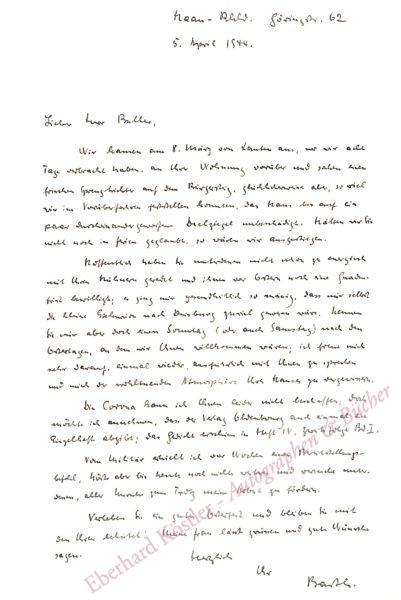 Haan-Rhld. Göringstr. 62
5. April 1944.
Lieber Herr Buller,
Wir kamen am 8. März von Xanten aus, wo wir acht
Tage verbracht haben, an Ihrer Wohnung vorüber und sahen einen
frischen Sprengtrichter auf dem Bürgersteig, glücklicherweise aber, so viel
wir im Vorüberfahren feststellen konnten, das Haus bis auf ein
paar durcheinandergeworfene Dachziegel unbeschädigt. Hätten wir Sie
nicht noch in Ferien geglaubt, so wären wir ausgestiegen.
Hoffentlich haben Sie unterdessen nicht schon zu energisch
mit Ihren Hühnern geredet und ihnen vor Ostern noch eine Gnaden-
frist bewilligt; es ging mir gesundheitlich so mässig, dass mir selbst
die kleine Exkursion nach Duisburg zuviel gewesen wäre. Nennen
Sie mir aber doch einen Sonntag (oder auch Samstag) nach den
Ostertagen, an dem wir Ihnen willkommen wären; ich freue mich
sehr darauf, einmal wieder ausführlich mit Ihnen zu sprechen
und mich der wohltuenden Atmosphäre Ihres Hauses zu vergewissern.
Die Corona kann ich Ihnen leider nicht beschaffen, doch
möchte ich annehmen, dass der Verlag Oldenbourg auch einmal ein
Einzelheft abgibt; das Gedicht erschien in Heft IV. Zweite Folge Bd. I.
Vom Militär erhielt ich vor Wochen einen Bereitstellungs-
befehl, hörte aber bis heute noch nichts weiter und versuche unter-
dessen, aller Unruhe zum Trotz meine Arbeit zu fördern.
Verleben Sie ein gutes Osterfest und bleiben Sie mit
den Ihren behütet! Meine Frau lässt grüssen und gute Wünsche
sagen.
Herzlich
Ihr
Barth.
Eberhard Köstler - Autographen & Bücher